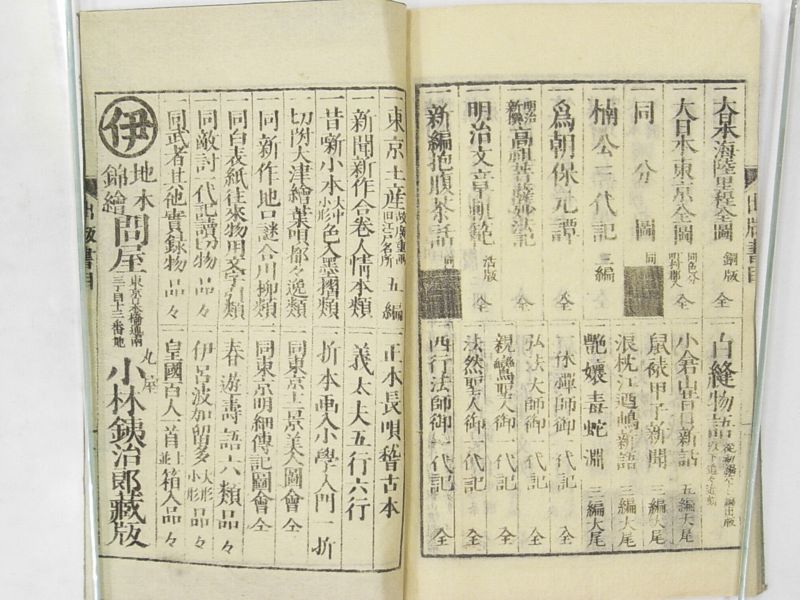 大日本海陸里程全圖 銅版 全
大日本東京全圖 全
同分圖
楠公三代記 三編
爲朝保元譚 全
明治新撰 高祖菩薩妙法記 全
明治文章規範 活版 全
新編抱腹茶話 同
白縫物語
小倉山青樹新話 五編大尾
鼠裱甲子新聞 三編大尾
浪枕江の嶋新語 三編大尾
艶孃毒蛇淵 三編大尾
一休禪師御一代記 全
弘法大師御一代記 全
親鸞聖人御一代記 全
法然聖人御一代記 全
西行法師御一代記 全
出版書目
東京土産 五編
新聞新作合巻人情本類
昔噺小本大中小形色入墨摺類
切附大津繪葉唄都々逸類
同新作地口謎合川柳類
同白表紙往來物明文字習類
同敵討一代記讀切物 品々
同武者其他實録物 品々
正本長唄稽古本
義太夫五行六行
折本画入小學入門一折
同東京土京美人圖會 全
同東京明細傳記圖會 全
春遊壽語六類品々
伊呂波加留多 大形小形 品々
皇國百人一首並上箱入品々
伊
地本錦繪問屋
東京日本橋通南三丁目十三番地
丸屋 小林鉄治郎藏版
出版書目